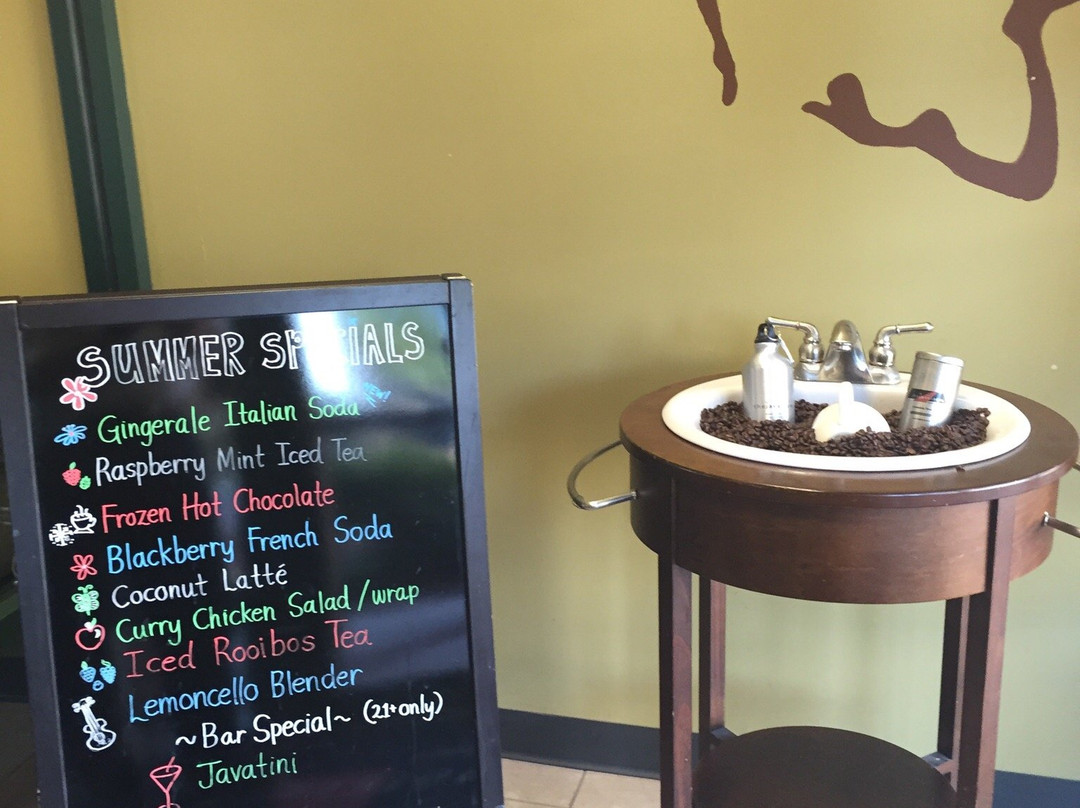 SUMMER SPECIALS
Gingerale Italian Soda
Raspberry Mint Iced Tea
Frozen Hot Chocolate
Blackberry French Soda
Coconut Latté
Curry Chicken Salad/wrap
Iced Rooibos Tea
Lemoncello Blender
~Bar Special~ (21+only)
Javatini